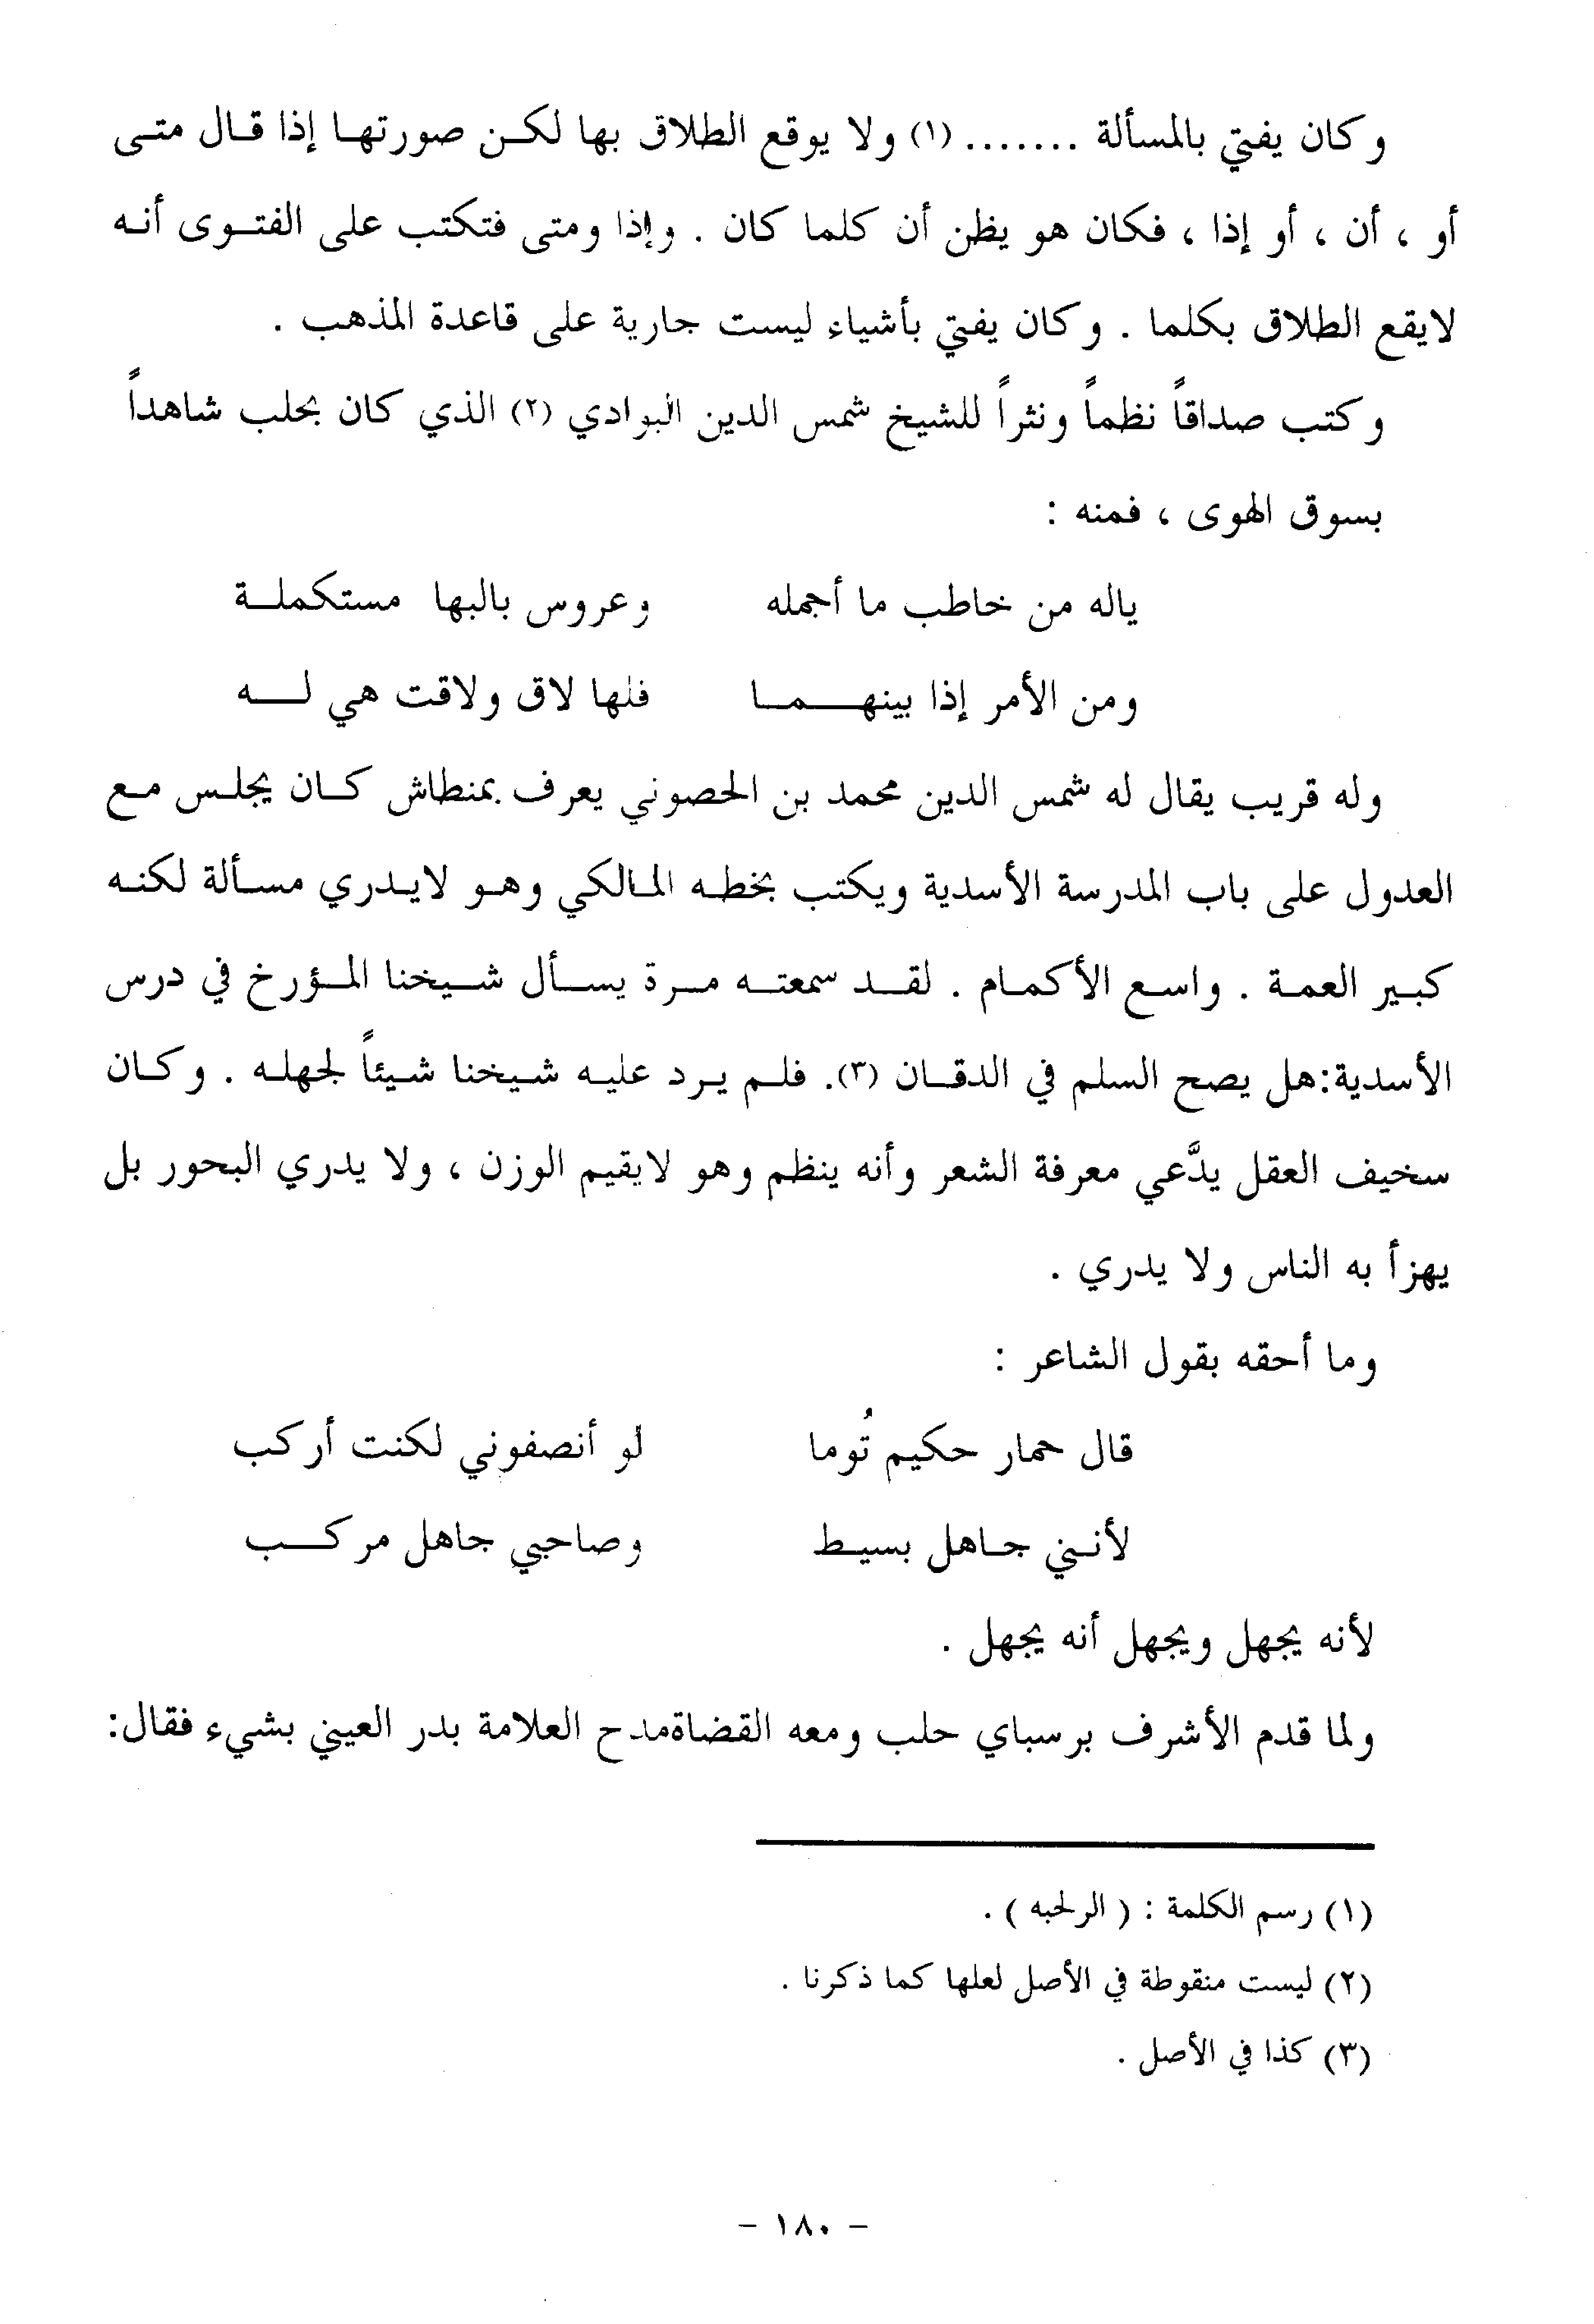 وكان يفتي بالمسألة ....... (١) ولا يوقع الطلاق بها لكن صورتها إذا قال متى
أو ، أن ، أو إذا ، فكان هو يظن أن كلما كان . وإذا ومتى فتكتب على الفتوى أنه
لايقع الطلاق بكلما . وكان يفتي بأشياء ليست جارية على قاعدة المذهب .
وكتب صداقاً نظماً ونثراً للشيخ شمس الدين البوادي (٢) الذي كان بحلب شاهداً
بسوق الهوى ، فمنه :
ياله من خاطب ما أجمله وعروس بالبها مستكملة
ومن الأمر إذا بينهما فلها لاق ولاقت هي له
وله قريب يقال له شمس الدين محمد بن الحصوني يعرف بمنطاش كان يجلس مع
العدول على باب المدرسة الأسدية ويكتب بخطه المالكي وهو لايدري مسألة لكنه
كبير العمة . واسع الأكمام . لقد سمعته مرة يسأل شيخنا المؤرخ في درس
الأسدية:هل يصح السلم في الدقان (٣). فلم يرد عليه شيخنا شيئاً لجهله . وكان
سخيف العقل يدَّعي معرفة الشعر وأنه ينظم وهو لايقيم الوزن ، ولا يدري البحور بل
يهزأ به الناس ولا يدري .
وما أحقه بقول الشاعر :
قال حمار حكيم تُوما لو أنصفوني لكنت أركب
لأنني جاهل بسيط وصاحبي جاهل مركب
لأنه يجهل ويجهل أنه يجهل .
ولما قدم الأشرف برسباي حلب ومعه القضاةمدح العلامة بدر العيني بشيء فقال:
(١) رسم الكلمة : ( الرلحبه ) .
(٢) ليست منقوطة في الأصل لعلها كما ذكرنا .
(٣) كذا في الأصل .
- ١٨٠ -